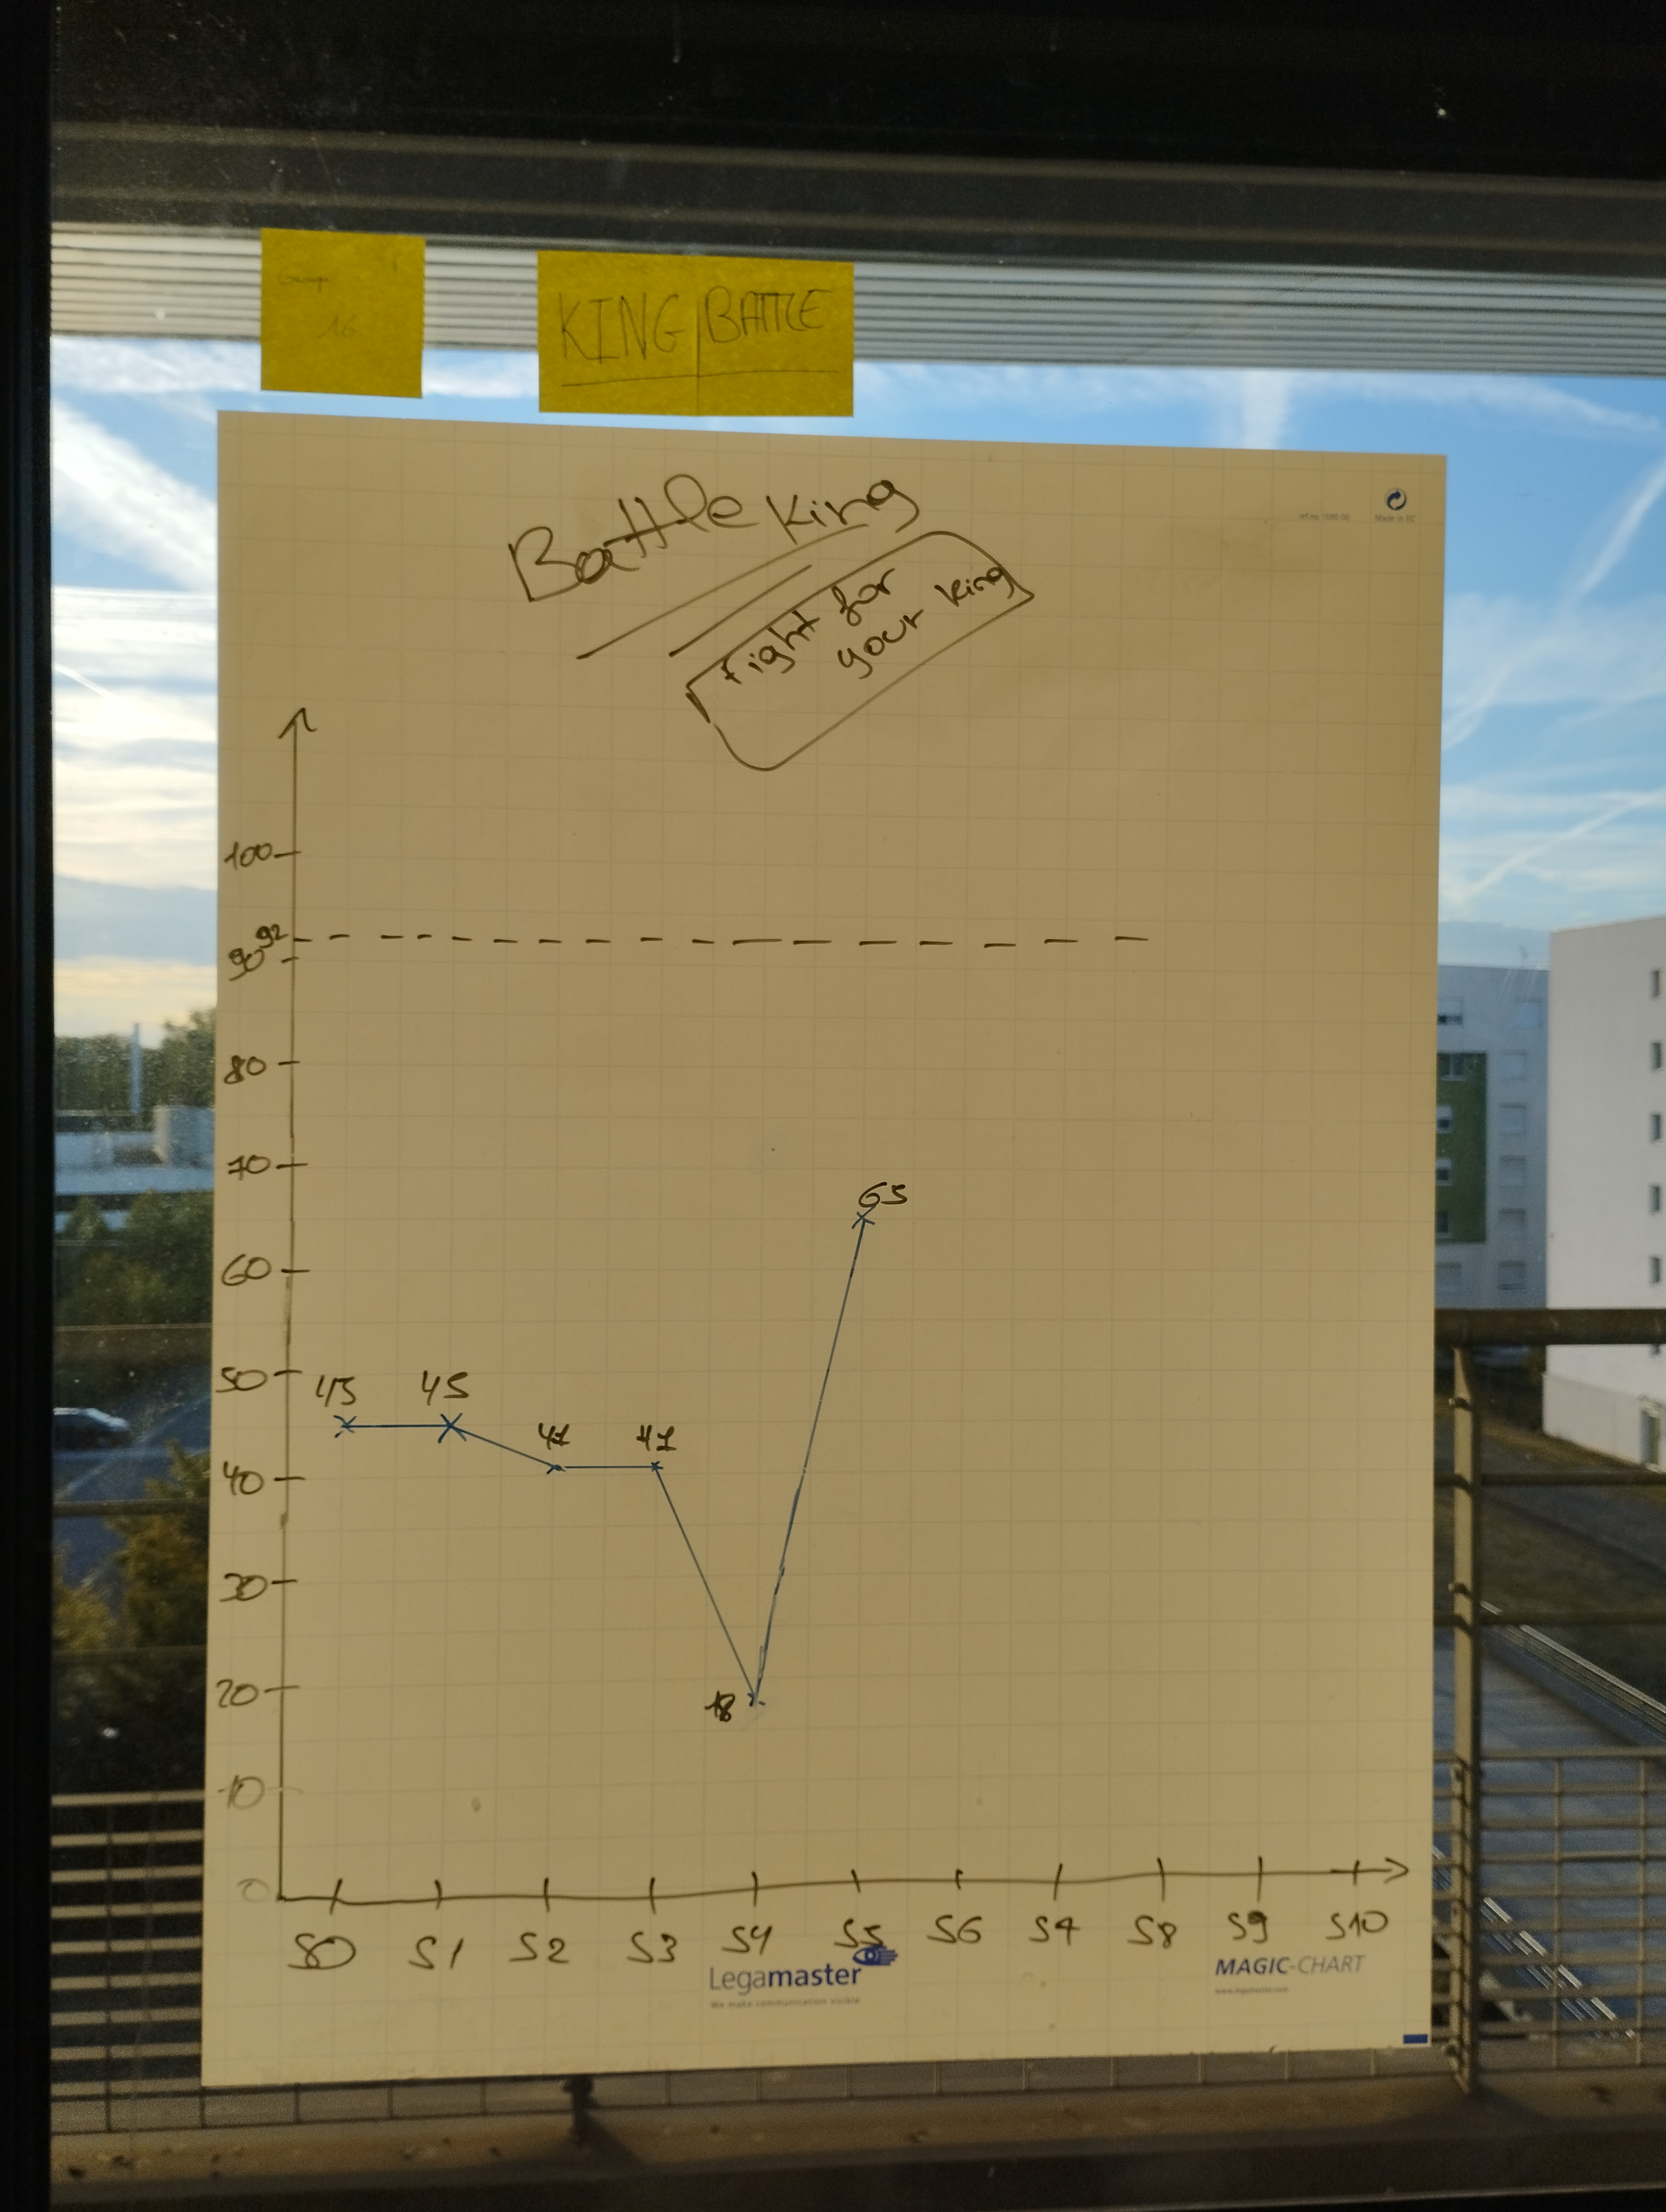 Groupe
16
KING BATTLE
Battle King
Fight for
your king
Made in EC
100
92
90
80
70
60
50
40
30
20
10
0
45
45
41
41
18
65
S0 S1 S2 S3 S4 S5 S6 S7 S8 S9 S10
Legamaster
We make communication visible
MAGIC-CHART
www.legamaster.com